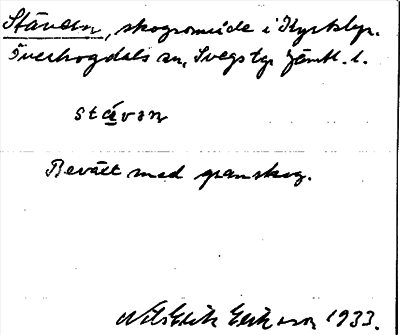 Ståven, skogsområde i Kyrkbyn.
Överhogdals sn, Svegs tg Jämtl. l.
ståvən
Beväxt med granskog.
Nils Erik Eriksson 1933.